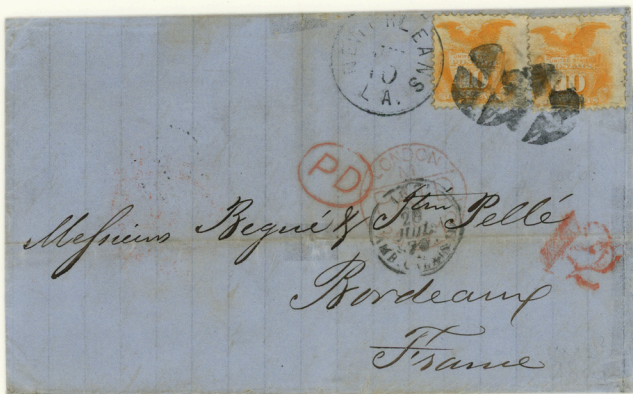 NEW ORLEANS
10
LA.
10
10
PD
LONDON
Messieurs Begué & Hrin Pellé
Bordeaux
France